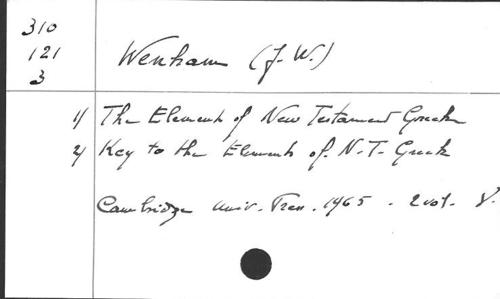 310
121
3
Wenham (J. W.)
1/ The Elements of New Testament Greek
2/ Key to the Elements of N.T. Greek
Cambridge Univ. Press. 1965. 2 vol. 8.